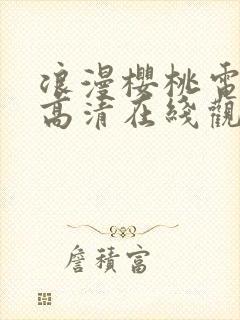 浪漫櫻桃電
高清在綫觀
詹積富